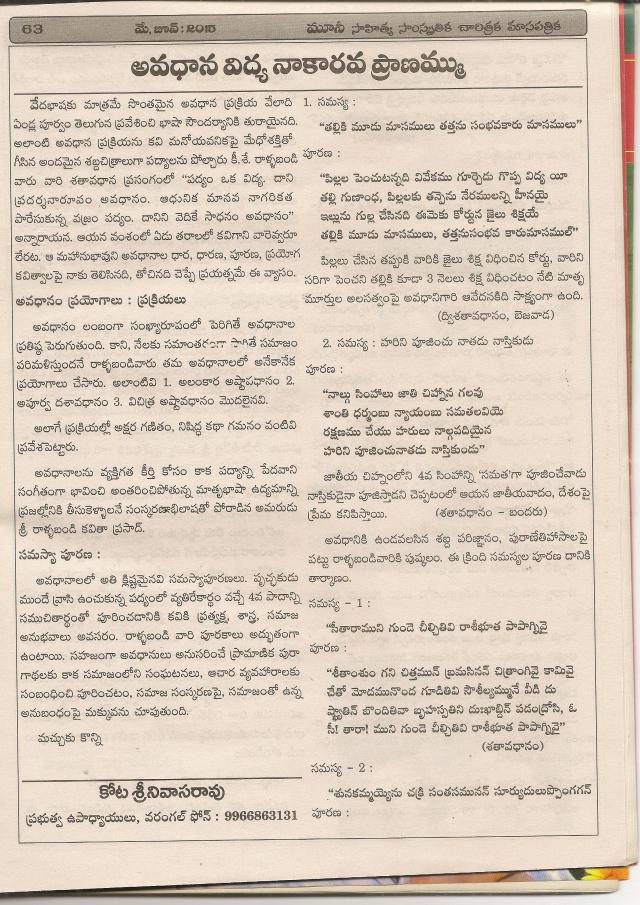 63 మే, జూన్ : 2015 మూసీ సాహిత్య సాంస్కృతిక చారిత్రక మాసపత్రిక
అవధాన విద్య నాకారవ ప్రాణమ్ము
వేదభాషకు మాత్రమే సొంతమైన అవధాన ప్రక్రియ వేలాది
ఏండ్ల పూర్వం తెలుగున ప్రవేశించి భాషా సౌందర్యానికి తురాయైనది.
అలాంటి అవధాన ప్రక్రియను కవి మనోయవనికపై మేధోశక్తితో
గీసిన అందమైన శబ్దచిత్రాలుగా పద్యాలను పోల్చారు కీ.శే. రాళ్ళబండి
వారు వారి శతావధాన ప్రసంగంలో “పద్యం ఒక విద్య. దాని
ప్రదర్శనారూపం అవధానం. ఆధునిక మానవ నాగరికత
పారేసుకున్న వజ్రం పద్యం. దానిని వెదికే సాధనం అవధానం”
అన్నారాయన. ఆయన వంశంలో ఏడు తరాలలో కవిగాని వారెవ్వరూ
లేరట. ఆ మహానుభావుని అవధానాల ధార, ధారణ, పూరణ, ప్రయోగ
కవిత్వాలపై నాకు తెలిసినది, తోచినది చెప్పే ప్రయత్నమే ఈ వ్యాసం.
అవధానం ప్రయోగాలు : ప్రక్రియలు
అవధానం లంబంగా సంఖ్యారూపంలో పెరిగితే అవధానాల
ప్రతిష్ఠ పెరుగుతుంది. కాని, నేలకు సమాంతరంగా సాగితే సమాజం
పరిమళిస్తుందనే రాళ్ళబండివారు తమ అవధానాలలో అనేకానేక
ప్రయోగాలు చేసారు. అలాంటివి 1. అలంకార అష్టావధానం 2.
అపూర్వ దశావధానం 3. విచిత్ర అష్టావధానం మొదలైనవి.
అలాగే ప్రక్రియల్లో అక్షర గణితం, నిషిద్ధ కథా గమనం వంటివి
ప్రవేశపెట్టారు.
అవధానాలను వ్యక్తిగత కీర్తి కోసం కాక పద్యాన్ని పేదవాని
సంగీతంగా భావించి అంతరించిపోతున్న మాతృభాషా ఉద్యమాన్ని
ప్రజల్లోనికి తీసుకెళ్ళాలనే సంస్కరణాభిలాషతో పోరాడిన అమరుడు
శ్రీ రాళ్లబండి కవితా ప్రసాద్.
సమస్యా పూరణ :
అవధానాలలో అతి క్లిష్టమైనవి సమస్యాపూరణలు. పృచ్ఛకుడు
ముందే వ్రాసి ఉంచుకున్న పద్యంలో వ్యతిరేకార్థం వచ్చే 4వ పాదాన్ని
సముచితార్థంతో పూరించడానికి కవికి ప్రత్యక్ష, శాస్త్ర, సమాజ
అనుభవాలు అవసరం. రాళ్లబండి వారి పూరకాలు అద్భుతంగా
ఉంటాయి. సహజంగా అవధానులు అనుసరించే ప్రామాణిక పురా
గాథలకు కాక సమాజంలోని సంఘటనలు, ఆచార వ్యవహారాలకు
సంబంధించి పూరించటం, సమాజ సంస్కరణపై, సమాజంతో ఉన్న
అనుబంధంపై మక్కువను చూపుతుంది.
మచ్చుకు కొన్ని
కోట శ్రీనివాసరావు
ప్రభుత్వ ఉపాధ్యాయులు, వరంగల్ ఫోన్ : 9966863131
1. సమస్య :
“తల్లికి మూడు మాసములు తత్తను సంభవకారు మాసములు”
పూరణ :
“పిల్లల పెంచుటన్నది వివేకము గూర్చెడు గొప్ప విద్య యీ
తల్లి గుణాంధ, పిల్లలకు తన్పెను నేరములన్ని హీనయై
ఇల్లును గుల్ల చేసినది ఈమెకు కోర్టున జైలు శిక్షయే
తల్లికి మూడు మాసములు, తత్తనుసంభవ కారుమాసముల్”
పిల్లలు చేసిన తప్పుకి వారికి జైలు శిక్ష విధించిన కోర్టు, వారిని
సరిగా పెంచని తల్లికి కూడా 3 నెలలు శిక్ష విధించటం నేటి మాతృ
మూర్తుల అలసత్వంపై అవధానిగారి ఆవేదనకిది సాక్ష్యంగా ఉంది.
(ద్విశతావధానం, బెజవాడ)
2. సమస్య : హరిని పూజించు నాతడు నాస్తికుడు
పూరణ :
“నాల్గు సింహాలు జాతి చిహ్నాన గలవు
శాంతి ధర్మంబు న్యాయంబు సమతలవియె
రక్షణము చేయు హరులు నాల్గవదియైన
హరిని పూజించునాతడు నాస్తికుండు”
జాతీయ చిహ్నంలోని 4వ సింహాన్ని ‘సమత’గా పూజించేవాడు
నాస్తికుడైనా పూజిస్తాడని చెప్పటంలో ఆయన జాతీయవాదం, దేశంపై
ప్రేమ కనిపిస్తాయి. (శతావధానం – బందరు)
అవధానికి ఉండవలసిన శబ్ద పరిజ్ఞానం, పురాణేతిహాసాలపై
పట్టు రాళ్ళబండివారికి పుష్కలం. ఈ క్రింది సమస్యల పూరణ దానికి
తార్కాణం.
సమస్య – 1 :
“సీతారాముని గుండె చీల్చితివి రాశీభూత పాపాగ్నివై
పూరణ :
“శీతాంశుం గని చిత్తమున్ భ్రమసినన్ చిత్రాంగివై కామివై
చేతో మోదమునొంద గూడితివి సౌశీల్యమ్మునే వీడి దు
ష్పూతిన్ బొందితివా బృహస్పతిని దుఃఖాబ్దిన్ పడంద్రోసి, ఓ
సీ! తారా! ముని గుండె చీల్చితివి రాశీభూత పాపాగ్నివై”
(శతావధానం)
సమస్య – 2 :
“శునకమ్మయ్యెను చక్రి సంతసమునన్ సూర్యుదులుప్పొంగగన్
పూరణ :